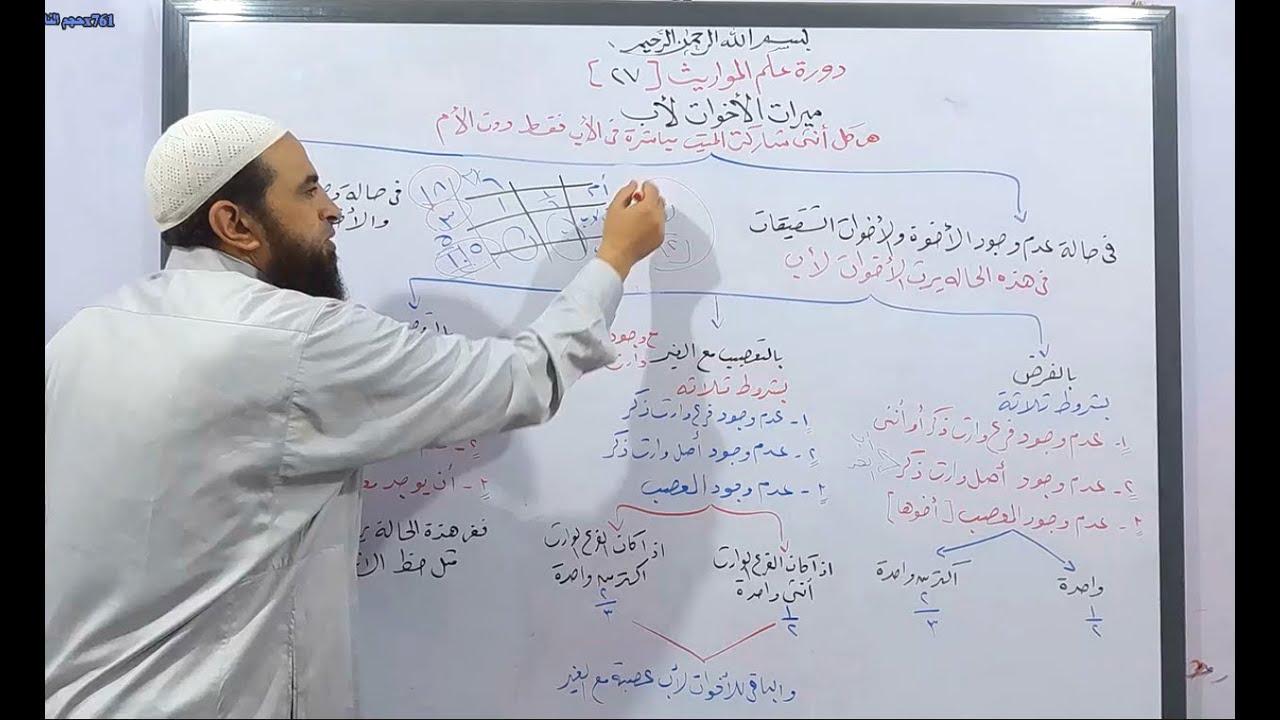 حجم النا x761
بسم الله الرحمن الرحيم
دورة علم المواريث [٢٧]
ميراث الأخوات لأب
هى كل أنثى شاركت الميت مباشرة فى الأب فقط دون الأم
فى حالة عدم وجود الأخوة والأخوات الشقيقات
فى هذه الحاله يرث الأخوات لأب
فى حالة
والأ
أم
١
٦
١
١٨
٣
٥
١٥
٥
بالفرض
بشروط ثلاثة
١- عدم وجود فرع وارث ذكر أو أنثى
٢- عدم وجود أصل وارث ذكر
٣- عدم وجود المعصب [أخوها]
واحدة
١/٢
أكثر من واحدة
٢/٣
بالتعصيب مع الغير
مع وجود
بشروط ثلاثه
١- عدم وجود فرع وارث ذكر
٢- عدم وجود أصل وارث ذكر
٣- عدم وجود المعصب
اذا كان الفرع الوارث
أنثى واحدة
١/٢
اذا كان الفرع الوارث
اكثر من واحدة
٢/٣
والباقى للأخوات لأب عصبة مع الغير
٣- أن يوجد
ففى هذة الحالة
مثل حظ